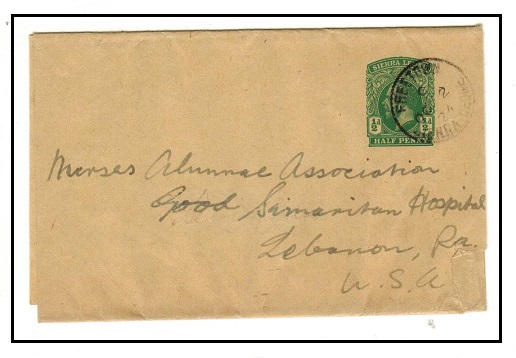 SIERRA LE
½d ½d
HALF PENNY
FREETOWN
SIERRA LEONE
Nurses Alumnae Association
Good Samaritan Hospital
Lebanon, Pa.
U.S.A